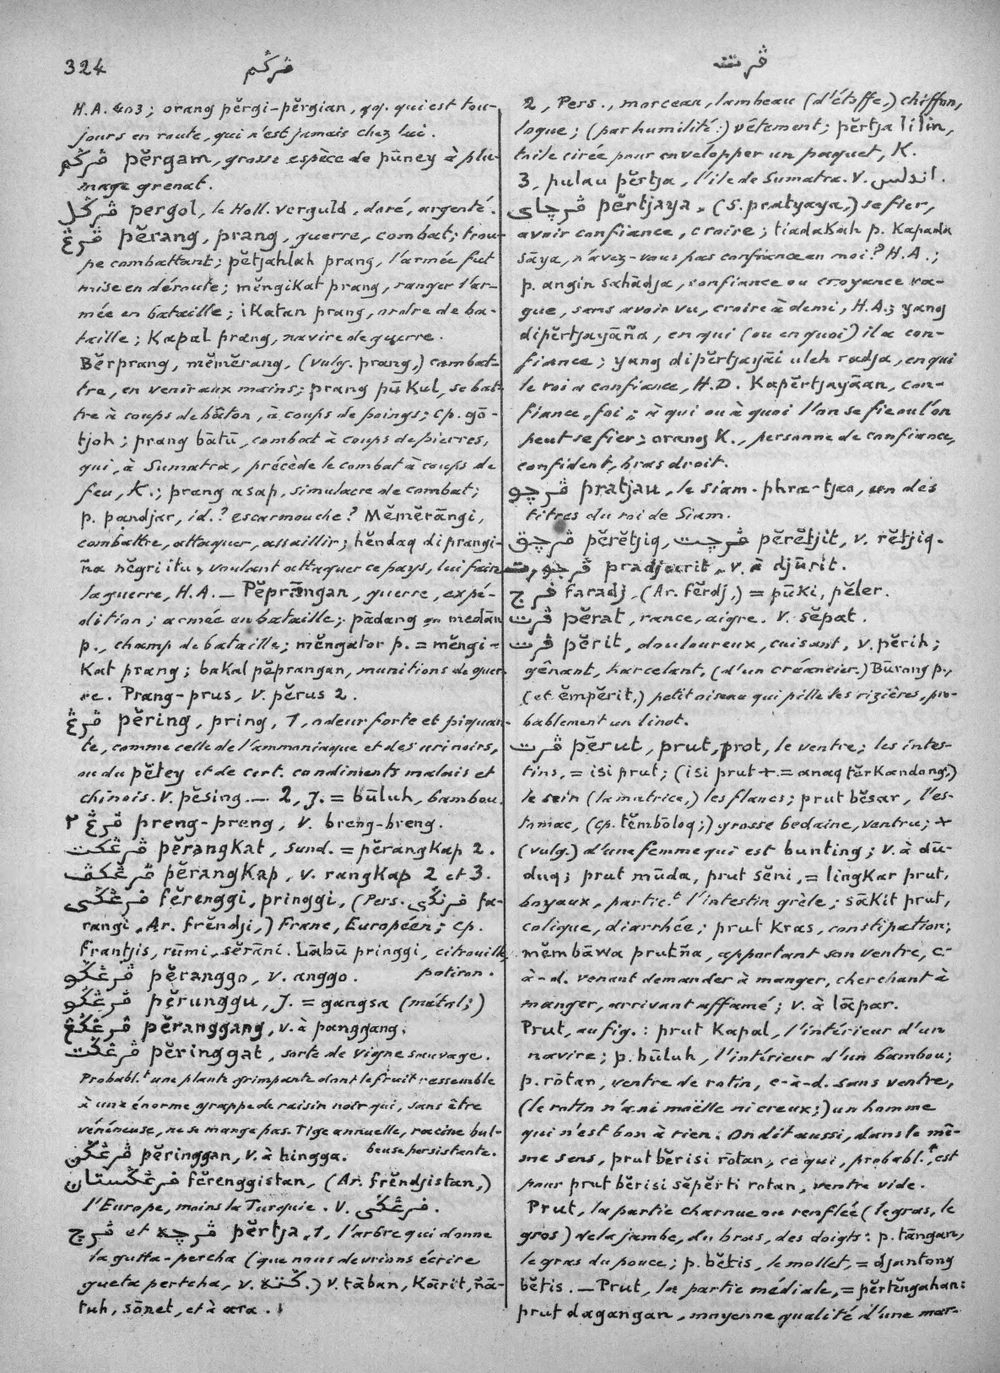 324
ڤرݢم
ڤرت
H.A. 403; orang pĕrgi-pĕrgian, qq. qui est tou-
jours en route, qui n'est jamais chez lui.
ڤرݢم pĕrgam, grosse espèce de pūney à plu-
mage grenat.
ڤرݢل pergol, le Holl. verguld, doré, argenté.
ڤرڠ pĕrang, prang, guerre, combat; trou-
pe combattant; pĕtjahlah prang, l'armée fut
mise en déroute; mĕngiKat prang, ranger l'ar-
mée en bataille; iKatan prang, ordre de ba-
taille; Kapal prang, navire de guerre.
Bĕrprang, mĕmĕrang, (vulg. prang,) combat-
tre, en venir aux mains; prang pūKul, se bat-
tre à coups de bâton, à coups de poings; cp. gō-
tjoh; prang bātū, combat à coups de pierres,
qui, à Sumatra, précède le combat à coups de
feu, K.; prang asap, simulacre de combat;
p. pandjar, id.? escarmouche? Mĕmĕrāngi,
combattre, attaquer, assaillir; hĕndaq diprangi-
ña nĕgri itu, voulant attaquer ce pays, lui faire
la guerre, H.A. — Pĕprāngan, guerre, expé-
dition; armée en bataille; pādang ou medān
p., champ de bataille; mĕngator p. = mĕngi-
Kat prang; baKal pĕprangan, munitions de guer-
re. Prang-prus, v. pĕrus 2.
ڤرڠ pĕring, pring, 1, odeur forte et piquan-
te, comme celle de l'ammoniaque et des urinoirs,
ou du pĕtey et de cert. condiments malais et
chinois. v. pĕsing. — 2, J. = būluh, bambou.
ڤرڠ ٢ preng-preng, v. breng-breng.
ڤرڠکت pĕrangKat, Sund. = pĕrangKap 2.
ڤرڠکڤ pĕrangKap, v. rangKap 2 et 3.
فرڠݢي fĕrenggi, pringgi, (Pers. فرنگی fa-
rangi, Ar. frĕndji,) Franc, Européen; cp.
Frantjis, rūmi, sĕrāni. Lābū pringgi, citrouille,
potiron.
ڤرڠݢو pĕranggo, v. anggo.
ڤرڠݢو pĕrunggu, J. = gangsa (métal;)
ڤرڠݢڠ pĕranggang, v. à panggang;
ڤرڠݢت pĕringgat, sorte de vigne sauvage.
Probabl.t une plante grimpante dont le fruit ressemble
à une énorme grappe de raisin noir qui, sans être
vénéneuse, ne se mange pas. Tige annuelle, racine bul-
beuse persistante.
ڤرڠݢن pĕringgan, v. à hingga.
فرڠݢستان fĕrenggistan, (Ar. frĕndjistan,)
l'Europe, moins la Turquie. v. فرڠݢي.
ڤرچ et ڤرچه pĕrtja, 1, l'arbre qui donne
la gutta-percha (que nous devrions écrire
gueta pertcha, v. ݢته.) v. tāban, Kārit, ñā-
tuh, sōnet, et à ara.
2, Pers., morceau, lambeau (d'étoffe,) chiffon,
loque; (par humilité:) vêtement; pĕrtja lilin,
toile cirée pour envelopper un paquet, K.
3, pulau pĕrtja, l'ile de Sumatra. v. اندلس.
ڤرچاي pĕrtjaya, (S. pratyaya,) se fier,
avoir confiance, croire; tiadaKah p. Kapada
sāya, n'avez-vous pas confiance en moi? H.A.;
p. angin sahādja, confiance ou croyance va-
gue, sans avoir vu, croire à demi, H.A.; yang
dipĕrtjayāña, en qui (ou en quoi) il a con-
fiance; yang dipĕrtjayāi uleh radja, en qui
le roi a confiance, H.D. Kapĕrtjayāan, con-
fiance, foi; à qui ou à quoi l'on se fie ou l'on
peut se fier; orang K., personne de confiance,
confident, bras droit.
ڤرچو pratjau, le siam. phra-tjao, un des
titres du roi de Siam.
ڤرچق pĕrĕtjiq, ڤرچت pĕrĕtjit, v. rĕtjiq.
ڤرجورت pradjurit, v. à djūrit.
فرج faradj, (Ar. fĕrdj,) = pūKi, pĕler.
ڤرت pĕrat, rance, aigre. v. sĕpat.
ڤرت pĕrit, douloureux, cuisant, v. pĕrih;
gênant, harcelant, (d'un créancier.) Būrong p.,
(et ĕmpĕrit,) petit oiseau qui pille les rizières, pro-
bablement un linot.
ڤرت pĕrut, prut, prot, le ventre; les intes-
tins, = isi prut; (isi prut + = anaq tĕrKandong,)
le sein (la matrice,) les flancs; prut bĕsar, l'es-
tomac, (cp. tĕmbōloq;) grosse bedaine, ventru; +
(vulg.) d'une femme qui est bunting; v. à dū-
duq; prut mūda, prut sĕni, = lingKar prut,
boyaux, partic.t l'intestin grêle; sāKit prut,
colique, diarrhée; prut Kras, constipation;
mĕmbāwa prutña, apportant son ventre, c-
à-d. venant demander à manger, cherchant à
manger, arrivant affamé; v. à lāpar.
Prut, au fig.: prut Kapal, l'intérieur d'un
navire; p. būluh, l'intérieur d'un bambou;
p. rōtan, ventre de rotin, c-à-d. sans ventre,
(le rotin n'a ni moëlle ni creux;) un homme
qui n'est bon à rien. On dit aussi, dans le mê-
me sens, prut bĕrisi rōtan, ce qui, probabl.t, est
pour prut bĕrisi sĕpĕrti rotan, ventre vide.
Prut, la partie charnue ou renflée (le gras, le
gros) de la jambe, du bras, des doigts: p. tāngan,
le gras du pouce; p. bĕtis, le mollet, = djantong
bĕtis. — Prut, la partie médiale, = pĕrtĕngahan:
prut dagangan, moyenne qualité d'une mar-